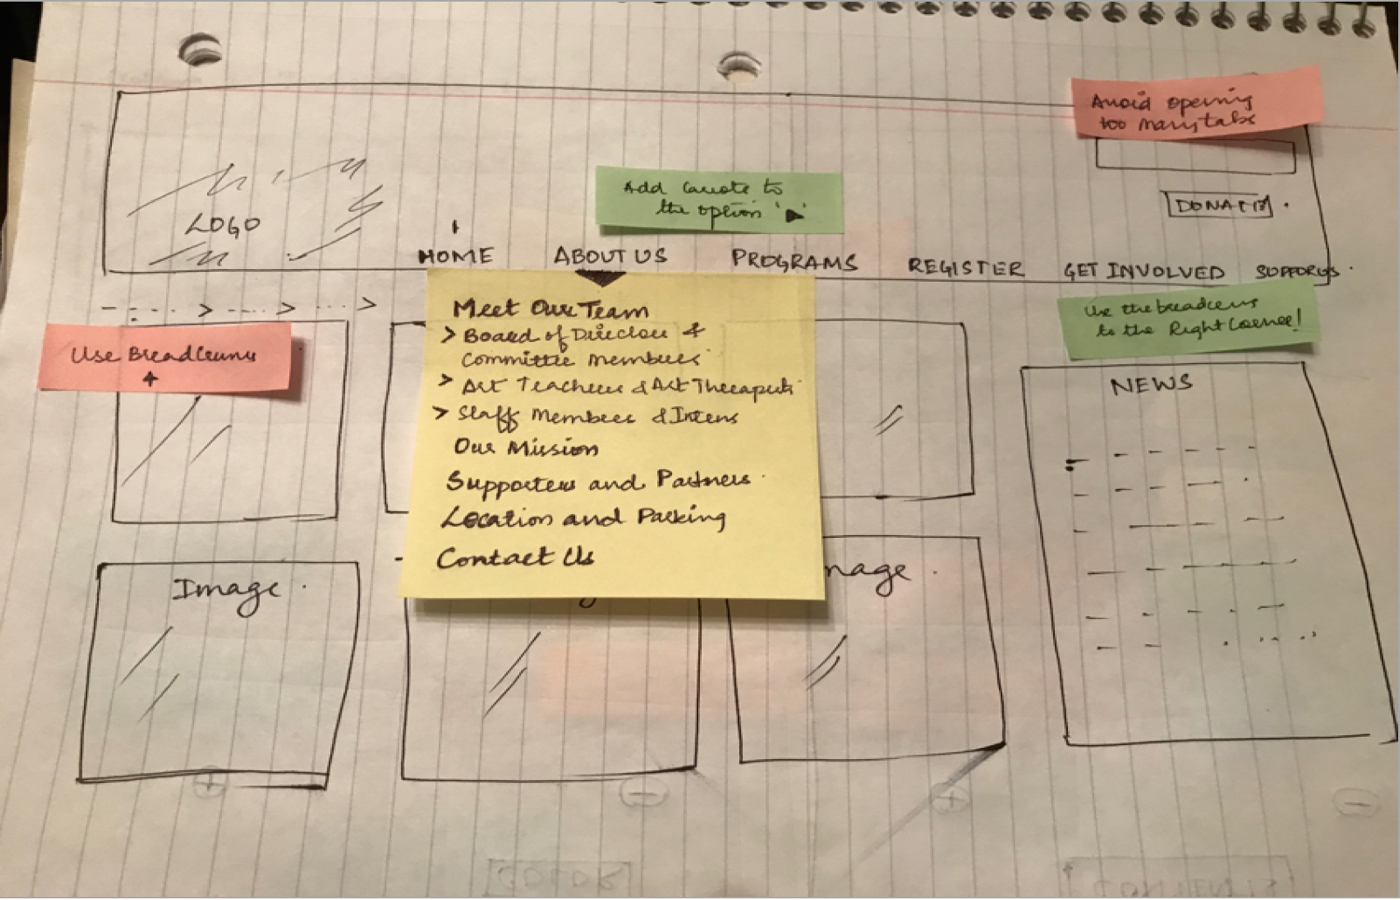 Avoid opening
too many tabs
Add Carrote to
the option '▶'
LOGO
DONATE
HOME
ABOUT US
PROGRAMS
REGISTER
GET INVOLVED
SUPPORT US
Use Breadcrums
Use the breadcrums
to the Right Corner!
Meet Our Team
> Board of Directors &
Committee Members
> Art Teachers & Art Therapists
> Staff Members & Interns
Our Mission
Supporters and Partners
Location and Parking
Contact Us
NEWS
Image
mage
COLOR